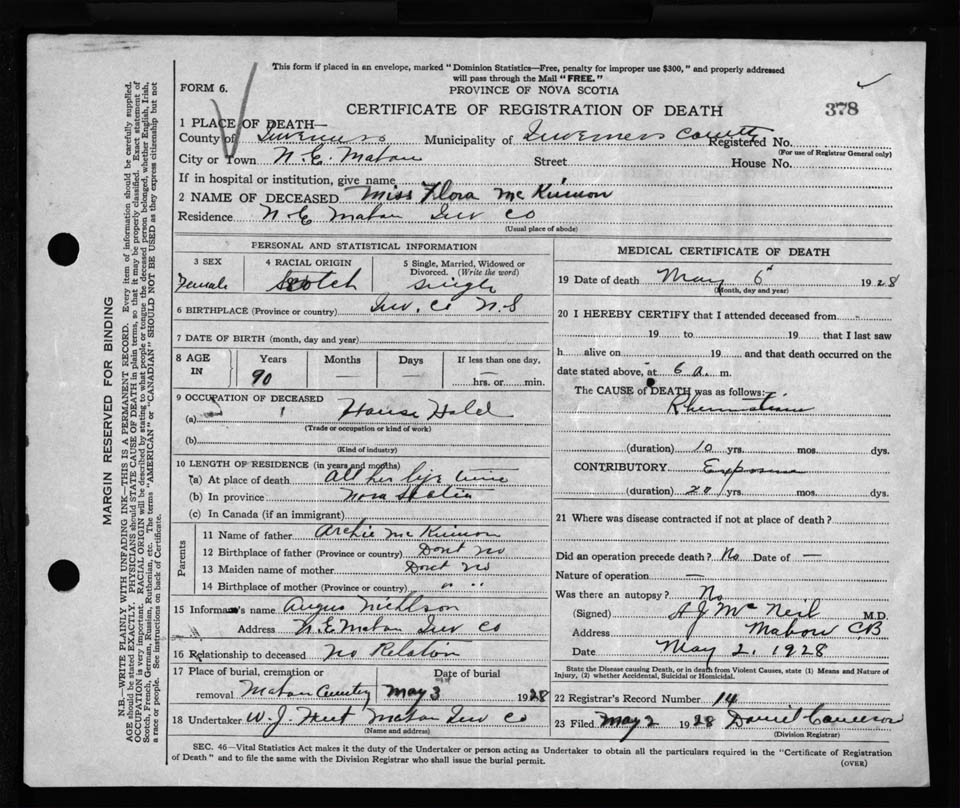 This form if placed in an envelope, marked "Dominion Statistics—Free, penalty for improper use $300," and properly addressed
will pass through the Mail "FREE."
FORM 6.
PROVINCE OF NOVA SCOTIA
CERTIFICATE OF REGISTRATION OF DEATH
378
1 PLACE OF DEATH—
County of Inverness Municipality of Inverness County Registered No.
(For use of Registrar General only)
City or Town N. E. Mabou Street House No.
If in hospital or institution, give name
2 NAME OF DECEASED Miss Flora McKinnon
Residence N E Mabou Inv Co
(Usual place of abode)
PERSONAL AND STATISTICAL INFORMATION
3 SEX Female
4 RACIAL ORIGIN Scotch
5 Single, Married, Widowed or Divorced. (Write the word) Single
6 BIRTHPLACE (Province or country) Inv. Co N.S
7 DATE OF BIRTH (month, day and year)
8 AGE IN Years Months Days If less than one day,
90 — — — hrs. or min.
9 OCCUPATION OF DECEASED
(a) House Hold
(Trade or occupation or kind of work)
(b)
(Kind of industry)
10 LENGTH OF RESIDENCE (in years and months)
(a) At place of death all her life time
(b) In province Nova Scotia
(c) In Canada (if an immigrant)
Parents
11 Name of father Archie McKinnon
12 Birthplace of father (Province or country) Dont no
13 Maiden name of mother Dont no
14 Birthplace of mother (Province or country) " "
15 Informant's name Angus Nichlson
Address N. E Mabou Inv Co
16 Relationship to deceased no Relation
17 Place of burial, cremation or removal Mabou Cemetry
Date of burial May 3 1928
18 Undertaker W. J. Mabou Inv Co
(Name and address)
MEDICAL CERTIFICATE OF DEATH
19 Date of death May 1928
(Month, day and year)
20 I HEREBY CERTIFY that I attended deceased from
19 to 19 that I last saw
h alive on 19 and that death occurred on the
date stated above, at 6 a. m.
The CAUSE of DEATH was as follows:
Rheumatism
(duration) 10 yrs. mos. dys.
CONTRIBUTORY Exposure
(duration) 20 yrs. mos. dys.
21 Where was disease contracted if not at place of death?
Did an operation precede death? No Date of —
Nature of operation —
Was there an autopsy? No
(Signed) A J McNeil M.D.
Address Mabou CB
Date May 2, 1928
State the Disease causing Death, or in death from Violent Causes, state (1) Means and Nature of
Injury, (2) whether Accidental, Suicidal or Homicidal.
22 Registrar's Record Number 14
23 Filed May 2 1928 Daniel Cameron
(Division Registrar)
SEC. 46—Vital Statistics Act makes it the duty of the Undertaker or person acting as Undertaker to obtain all the particulars required in the "Certificate of Registration
of Death" and to file the same with the Division Registrar who shall issue the burial permit.
(OVER)
MARGIN RESERVED FOR BINDING
N.B.—WRITE PLAINLY WITH UNFADING INK—THIS IS A PERMANENT RECORD. Every item of information should be carefully supplied.
AGE should be stated EXACTLY. PHYSICIANS should STATE CAUSE OF DEATH in plain terms, so that it may be properly classified. Exact statement of
OCCUPATION is very important. RACIAL ORIGIN will be described by stating to what people or tongue the deceased person belonged, whether English, Irish,
Scotch, French, German, Russian, Ruthenian, etc. The terms "AMERICAN" or "CANADIAN" SHOULD NOT BE USED as they express citizenship but not
a race or people. See instructions on back of Certificate.